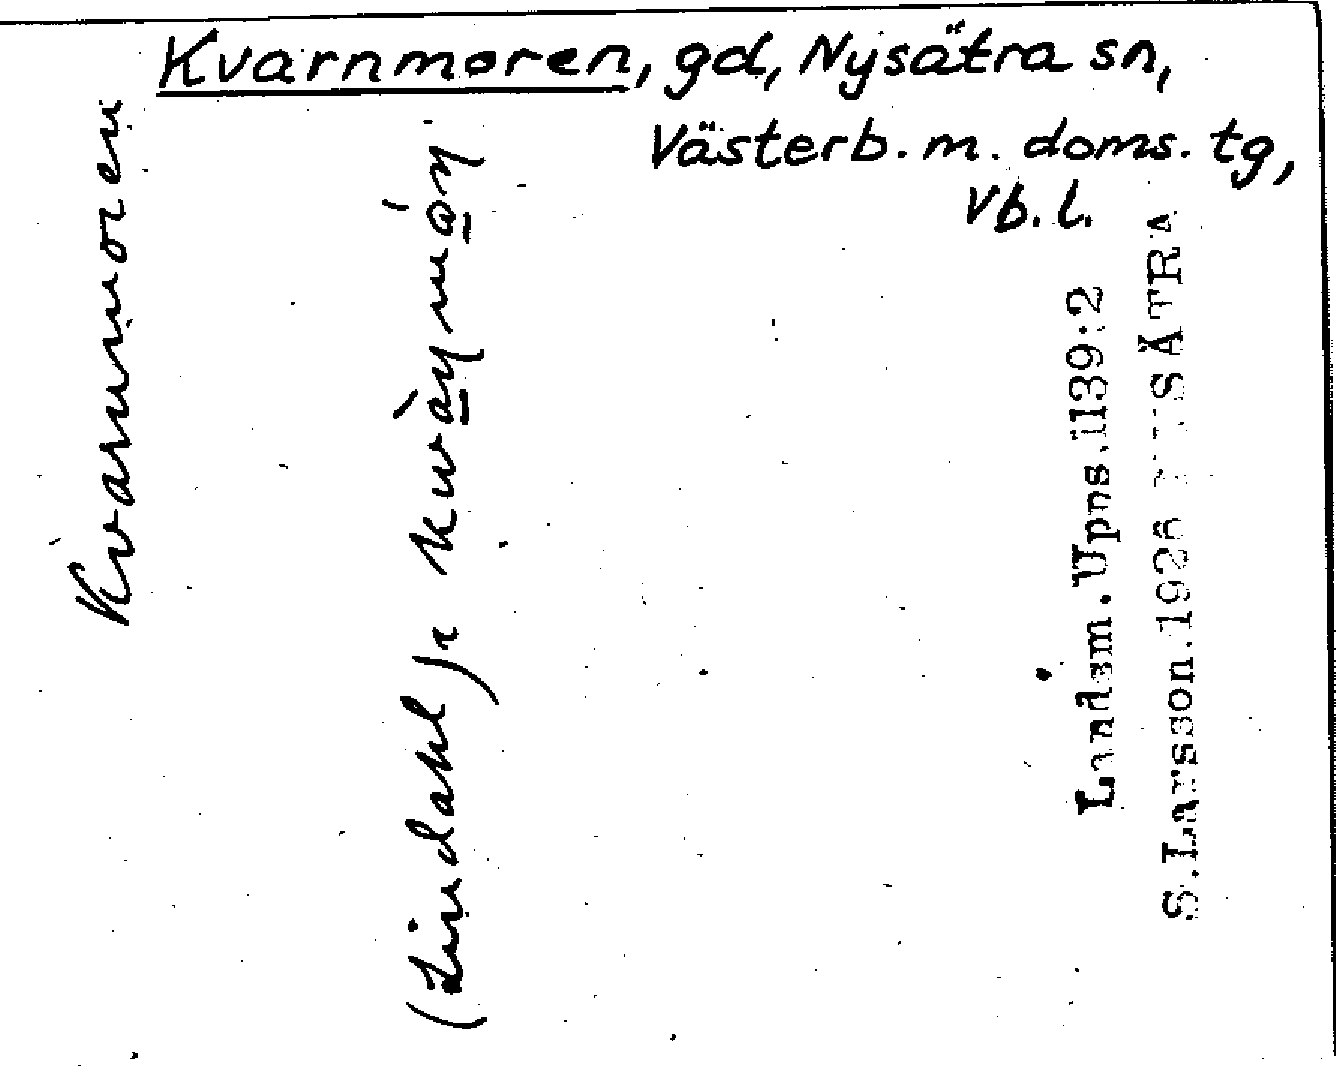 Kvarnmoren, gd, Nysätra sn,
Västerb. m. doms. tg,
Vb. l.
Kvarnmoren
(Lindahl) r. kwàṇmóṇ
Landsm. Upps. 1139:2
S. Larsson. 1926 NYSÄTRA